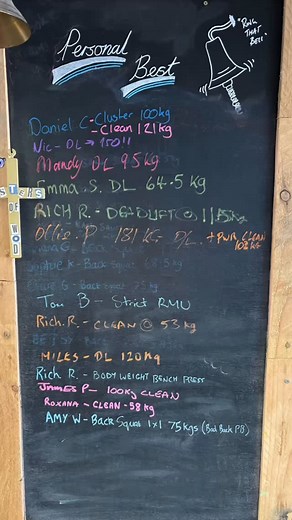 Personal
Best
"Ring
THAT
BELL"
Daniel C - Cluster 100kg
- Clean 121kg
Nic - DL → 150!!
Mandy DL 95kg
Emma S. DL 64.5 kg
RICH R. - DEADLIFT @ 115kg
Ollie P - 181 K - DL. + PWR CLEAN
102 kg
Sophie K - Back Squat 68.5 kg
Tom B - Strict RMU
Rich. R. - CLEAN @ 53 kg
MILES - DL 120kg
Rich R. - BODY WEIGHT BENCH PRESS
JAMES P - 100kg CLEAN
ROXANA - CLEAN - 58 kg
AMY W - Back Squat 1x1 75kgs (Bad Back PB)
OF
WOD